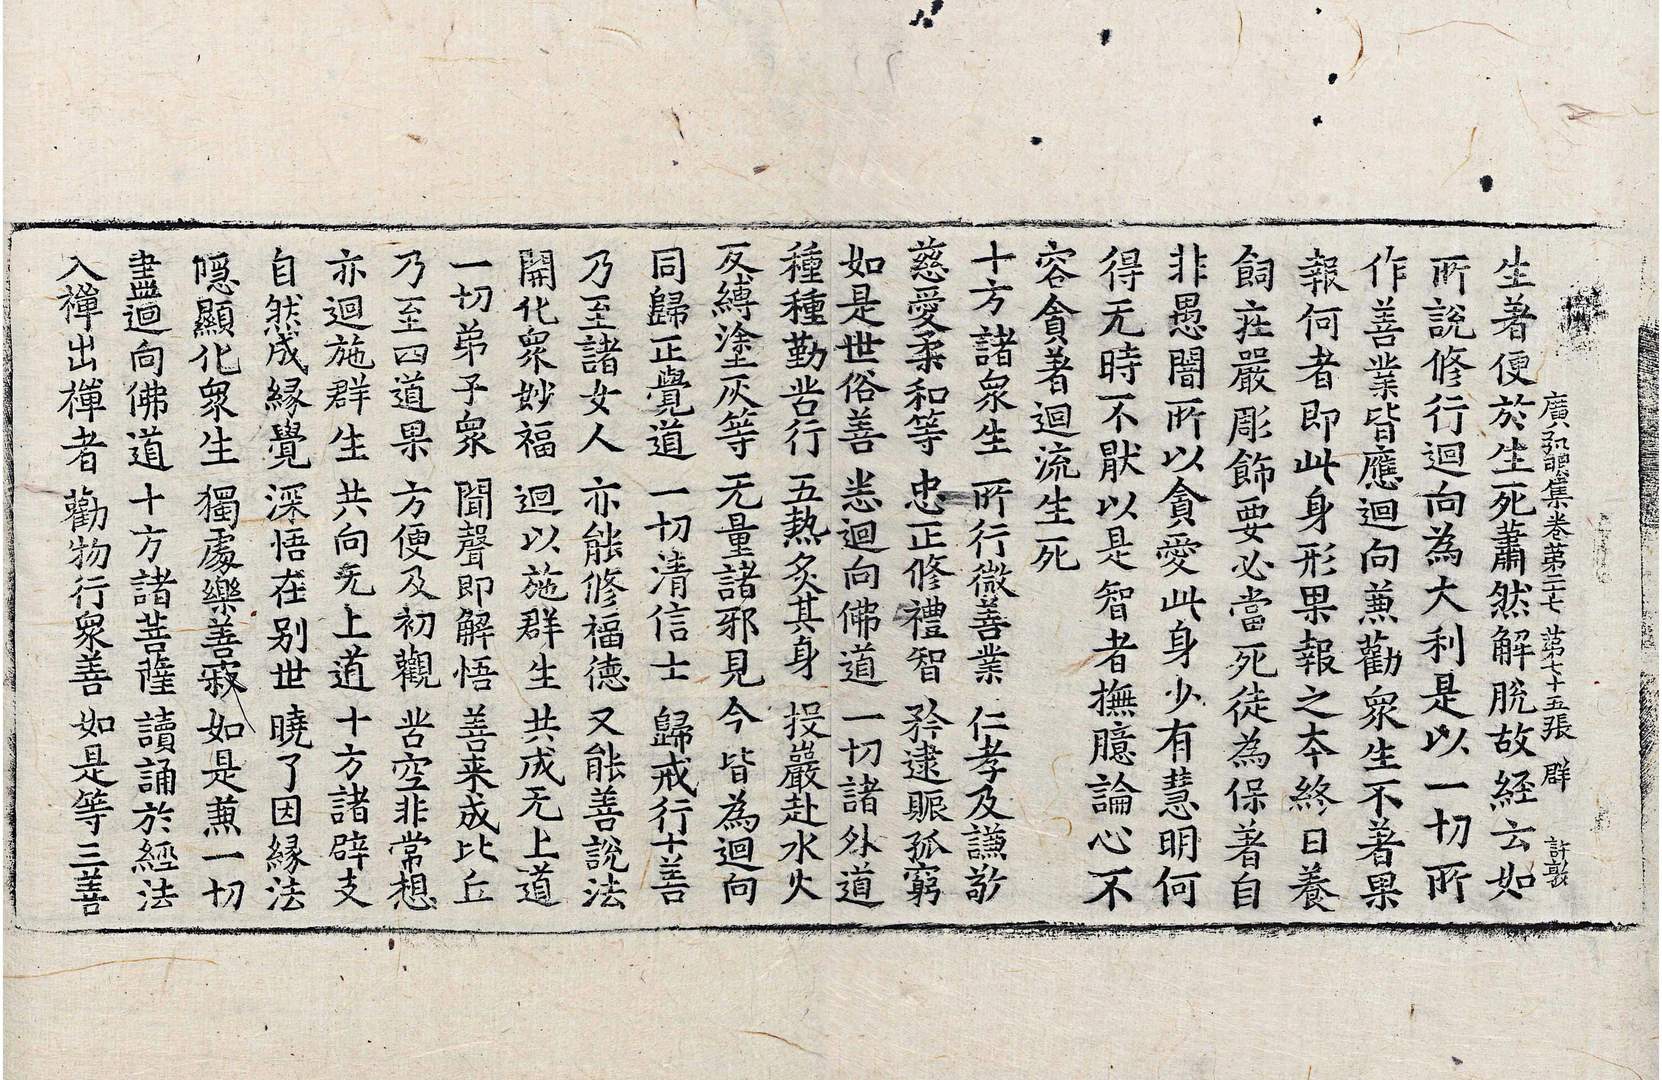 廣弘明集卷第二七 第七十五張 群 許敦
生著便於生死蕭然解脫故經云如
所說修行迴向為大利是以一切所
作善業皆應迴向兼勸衆生不著果
報何者即此身形果報之本終日養
飼莊嚴彫飾要必當死徒為保著自
非愚闇所以貪愛此身少有慧明何
得无時不猒以是智者撫臆論心不
容貪著迴流生死
十方諸衆生 所行微善業 仁孝及謙敬
慈愛柔和等 忠正修禮智 矜逮賑孤窮
如是世俗善 悉迴向佛道 一切諸外道
種種勤苦行 五熱炙其身 投巖赴水火
反縛塗灰等 无量諸邪見 今皆為迴向
同歸正覺道 一切清信士 歸戒行十善
乃至諸女人 亦能修福德 又能善說法
開化衆妙福 迴以施群生 共成无上道
一切弟子衆 聞聲即解悟 善來成比丘
乃至四道果 方便及初觀 苦空非常想
亦迴施群生 共向无上道 十方諸辟支
自然成緣覺 深悟在別世 曉了因緣法
隱顯化衆生 獨處樂善寂 如是兼一切
盡迴向佛道 十方諸菩薩 讀誦於經法
入禪出禪者 勸物行衆善 如是等三善